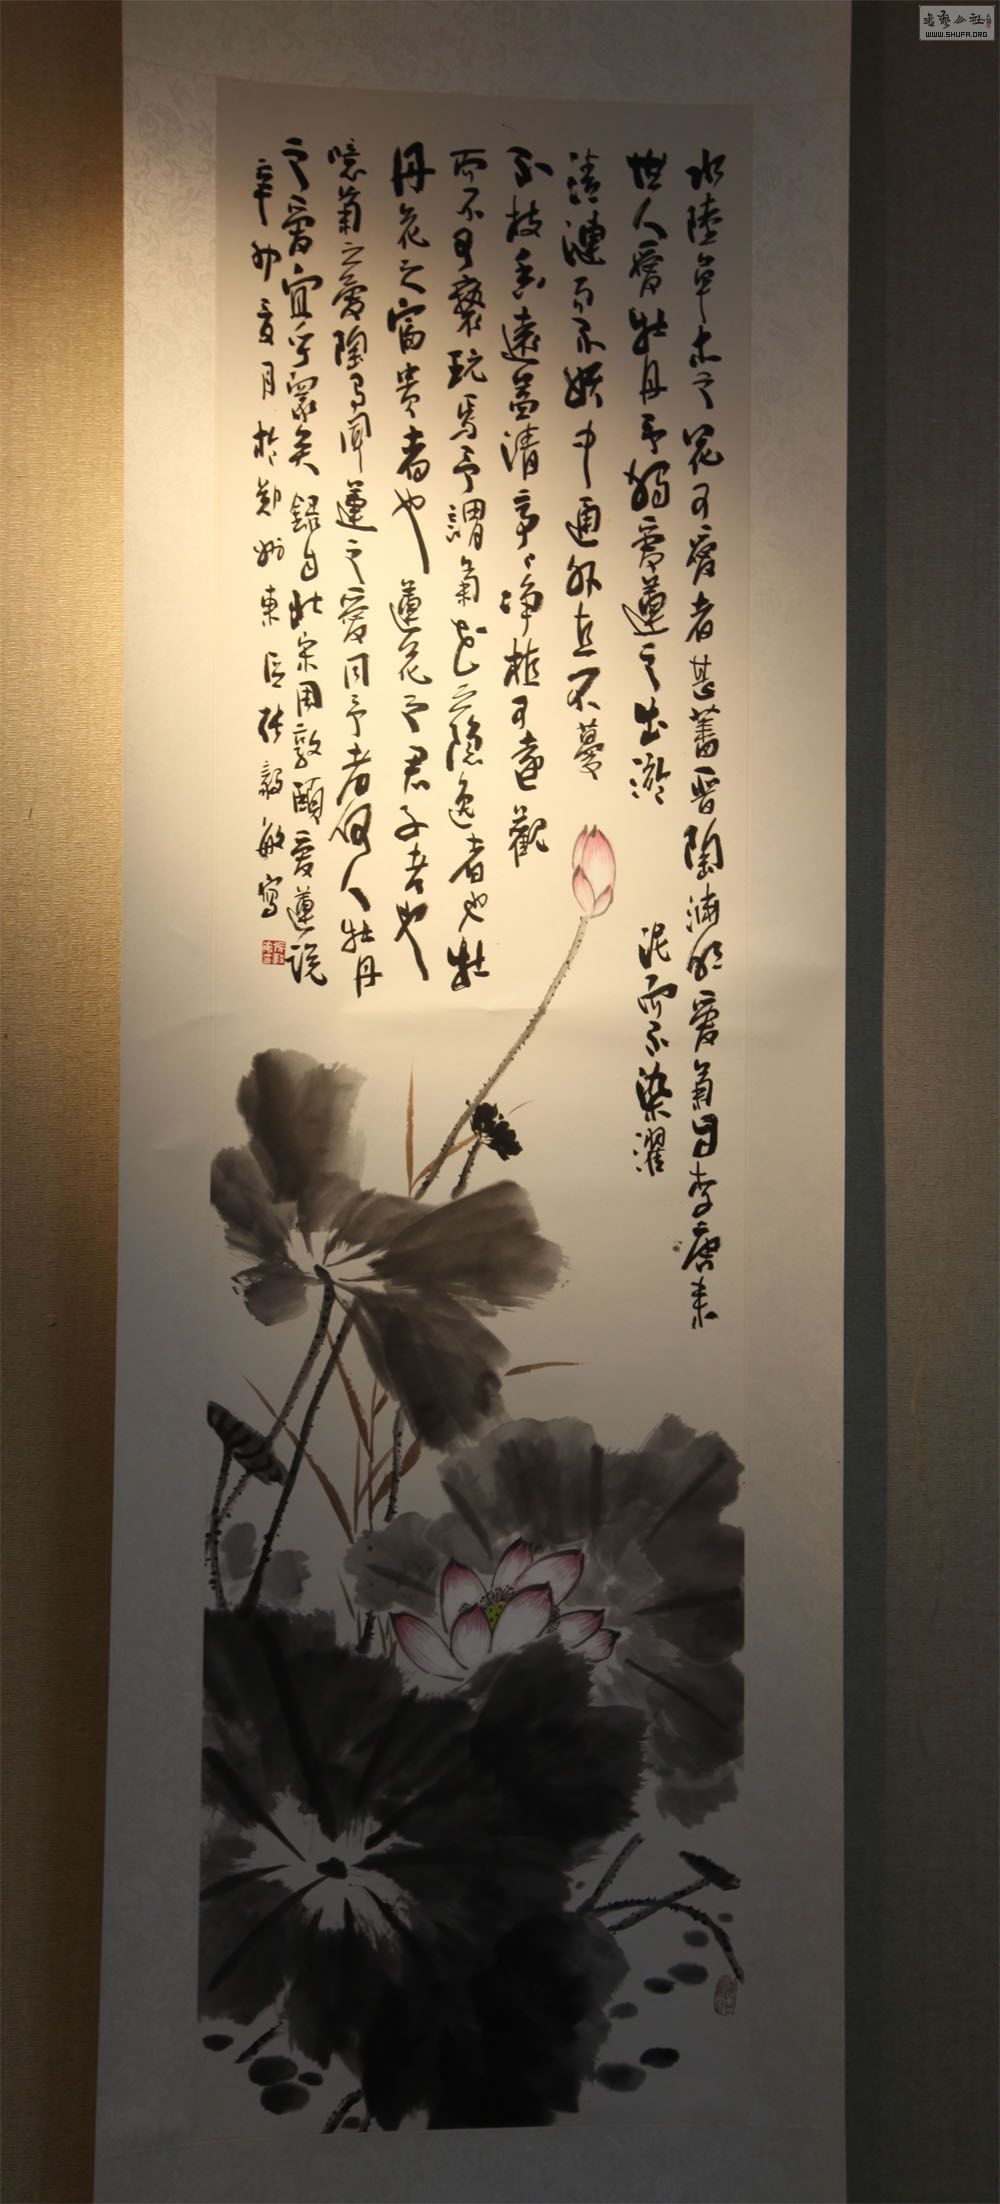 水陸草木之花可愛者甚蕃晋陶淵明愛菊自李唐来
世人愛牡丹予獨愛蓮之出淤泥而不染濯
清漣而不妖中通外直不蔓
不枝香遠益清亭亭净植可遠觀
而不可褻玩焉予謂菊花之隱逸者也牡
丹花之富貴者也蓮花之君子者也
噫菊之愛陶後聞蓮之愛同予者何人牡丹
之愛宜乎衆矣 録自北宋周敦頤愛蓮説
辛卯夏月於鄭州東 張毅敏寫
書藝公社
WWW.SHUFA.ORG